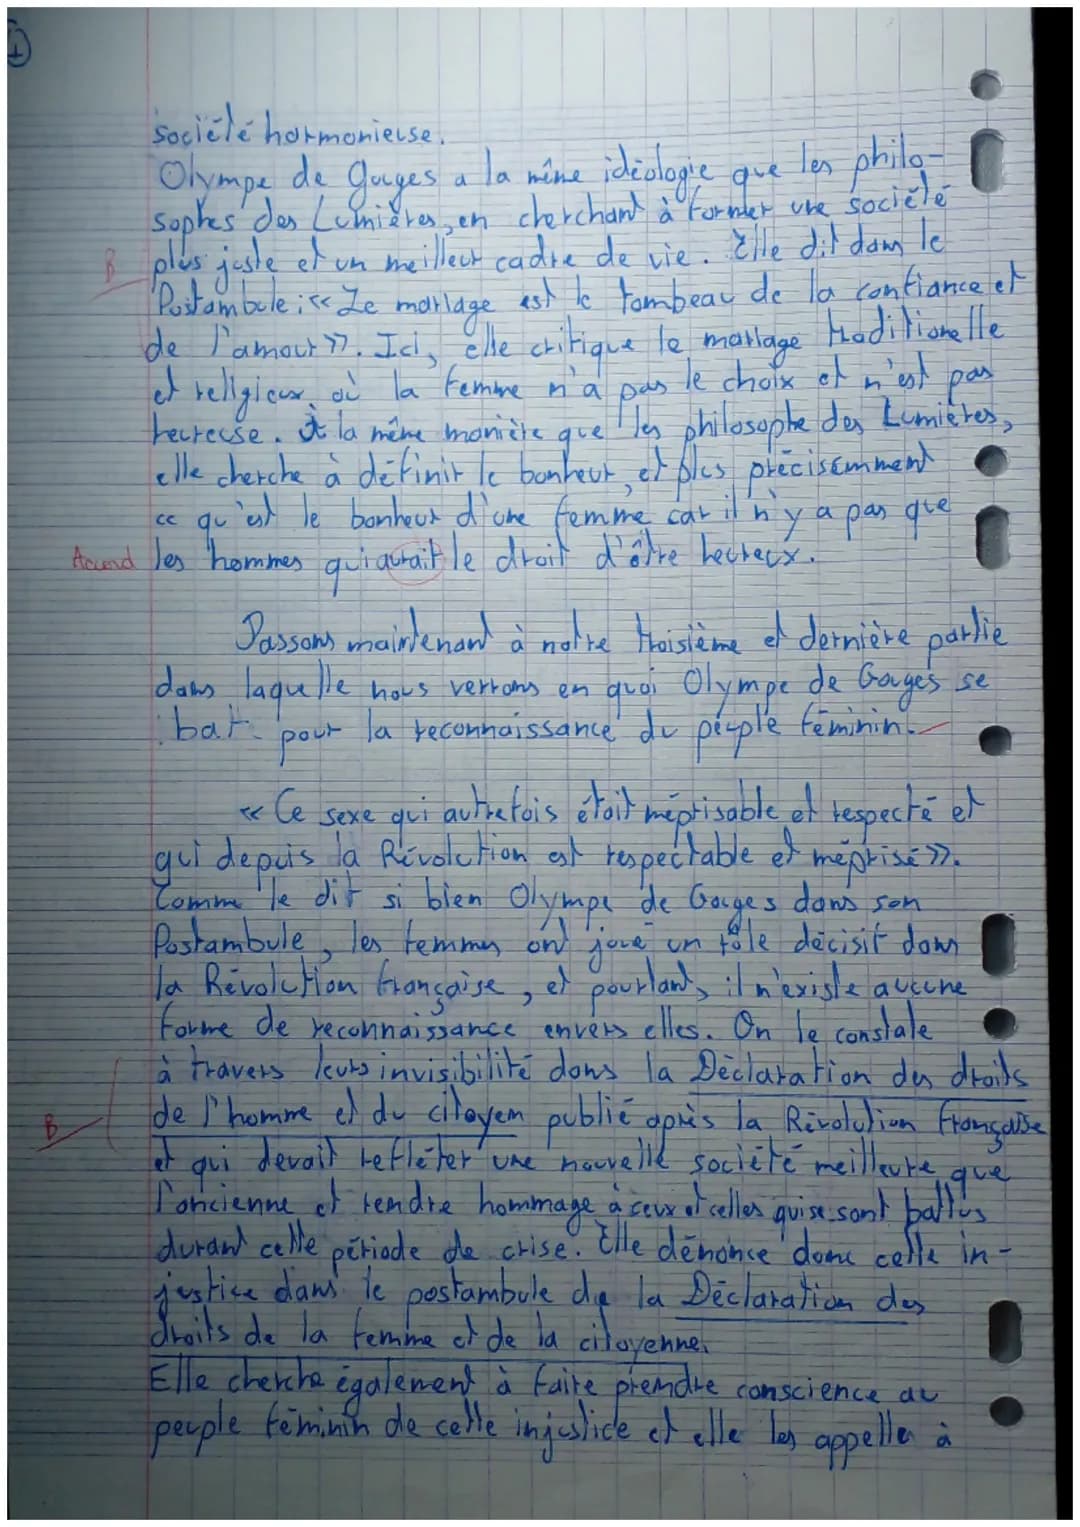 société harmonieuse.
Olympe de Gouges a la même idéologie que les philo-
sophes des Lumières, en cherchant à former une société
B plus juste et un meilleur cadre de vie. Elle dit dans le
Postambule : « Le mariage est le tombeau de la confiance et
de l'amour ». Ici, elle critique le mariage traditionelle
et religieux, où la femme n'a pas le choix et n'est pas
heureuse. À la même manière que les philosophe des Lumières,
elle cherche à définir le bonheur, et plus précisemment
ce qu'est le bonheur d'une femme car il n'y a pas que
Accord les hommes qui aurait le droit d'être heureux.
Passons maintenant à notre troisième et dernière partie
dans laquelle nous verrons en quoi Olympe de Gouges se
bat pour la reconnaissance du peuple féminin.
« Ce sexe qui autrefois était méprisable et respecté et
qui depuis la Révolution est respectable et méprisé ».
Comme le dit si bien Olympe de Gouges dans son
Postambule, les femmes ont joué un rôle décisif dans
la Révolution française, et pourtant, il n'existe aucune
forme de reconnaissance envers elles. On le constate
à travers leurs invisibilité dans la Déclaration des droits
B de l'homme et du citoyen publié après la Révolution française
et qui devait refléter une nouvelle société meilleure que
l'ancienne et rendre hommage à ceux et celles qui se sont battus
durant cette période de crise. Elle dénonce donc cette in-
justice dans le postambule de la Déclaration des
droits de la femme et de la citoyenne.
Elle cherche également à faire prendre conscience au
peuple féminin de cette injustice et elle les appelle à